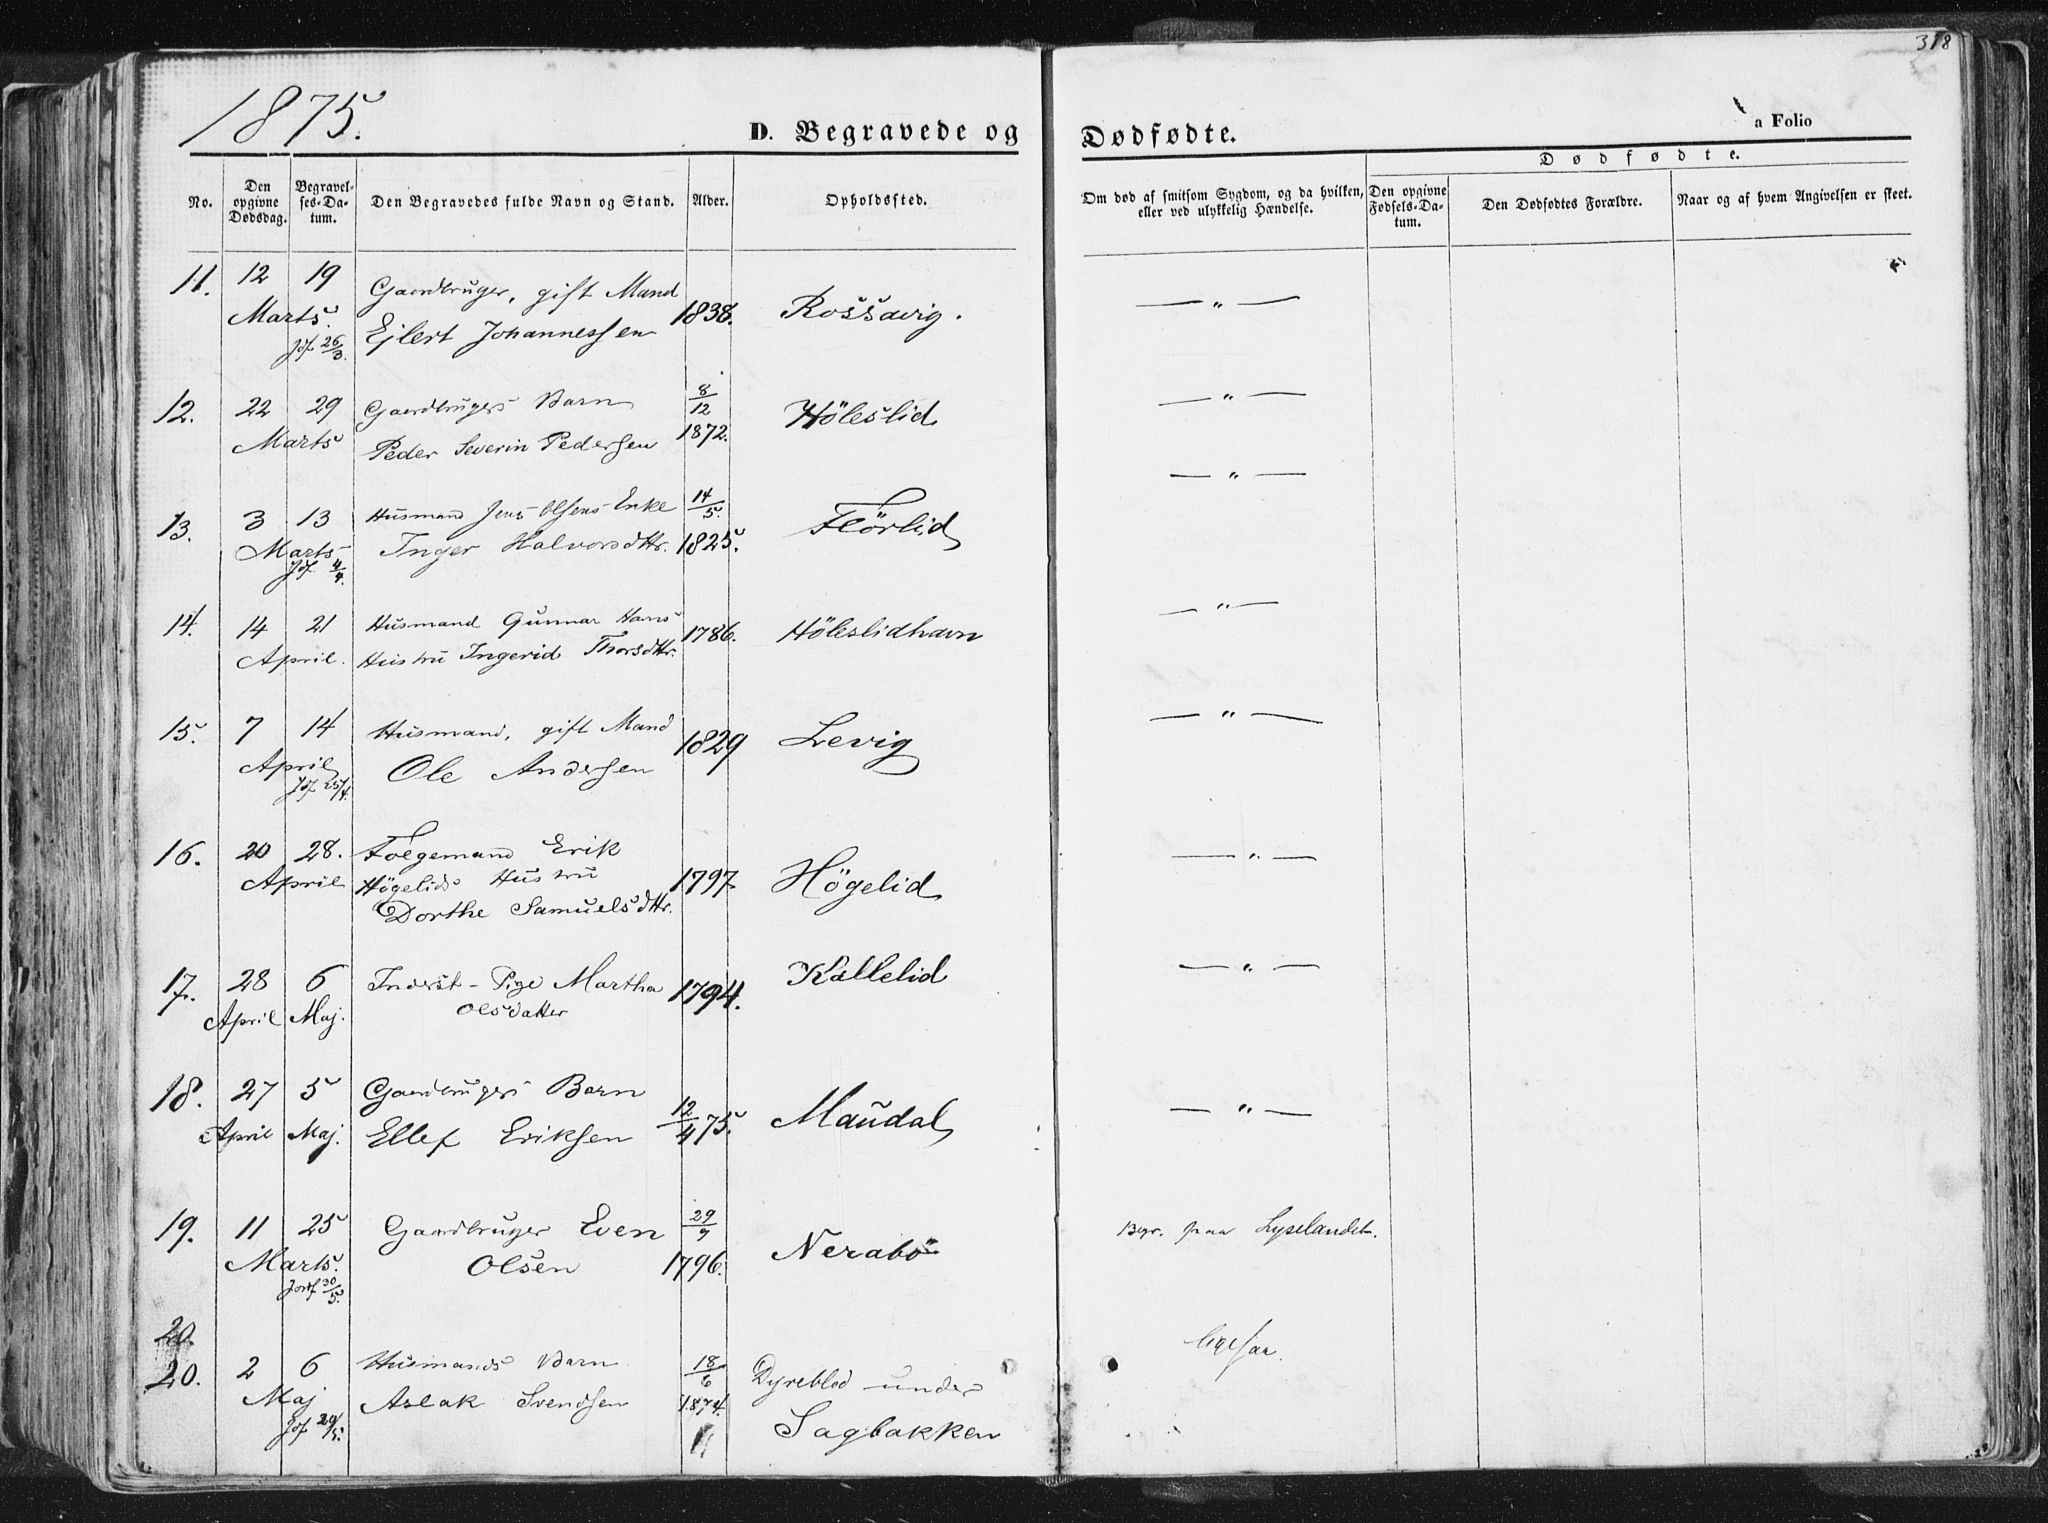 318
1875.
D. Begravede og Dødfødte.
a Folio
No.
Den opgivne Dødsdag.
Begravelses-Datum.
Den Begravedes fulde Navn og Stand.
Alder.
Opholdssted.
Om død af smitsom Sygdom, og da hvilken, eller ved ulykkelig Hændelse.
Dødfødte.
Den opgivne Fødsels-Datum.
Den Dødfødtes Forældre.
Naar og af hvem Angivelsen er skeet.
11. 12 19 Gaardbruger, gift Mand 1838. Rossavig. — " —
Marts. Ejlert Johannessen
Jdf 26/3.
12. 22 29 Gaardbrugers Barn 8/12 Höleslid — " —
Marts Peder Severin Pedersen 1872.
13. 3 13 Husmand Jens Olsens Enke 14/5. Flörlid — " —
Marts Inger Halvorsdttr. 1825.
Jdf 4/4.
14. 14 21 Husmand Gunnar Hans 1786. Höleslidhavn — " —
April. Hustru Ingerid Thorsdttr.
15. 7 14 Husmand, gift Mand 1829 Levig — " —
April Ole Andersen
Jdf 25/4.
16. 20 28. Folgemand Erik — " —
April Högelids Hustru 1797. Högelid
Dorthe Samuelsdttr.
17. 28 6 Inderst-Pige Martha 1794. Kallelid — " —
April Maj. Olsdatter
18. 27 5 Gaardbrugers Barn 12/4 75. Maudal — " —
April Maj. Ellef Eriksen
19. 11 25 Gaardbruger Even 29/9 Nerabö Begr. paa Lyselandet.
Marts. Olsen 1796.
Jordf 30/5.
20.
20. 2 6 Husmands Barn 18/6 Dyreblod under ligesaa.
Maj Aslak Svendsen 1874. Sagbakken
Jdf 29/5.